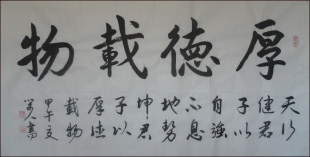 厚德載物
天行
健君
子以
自強
不息
地勢
坤君
子以
厚德
載物
甲午夏